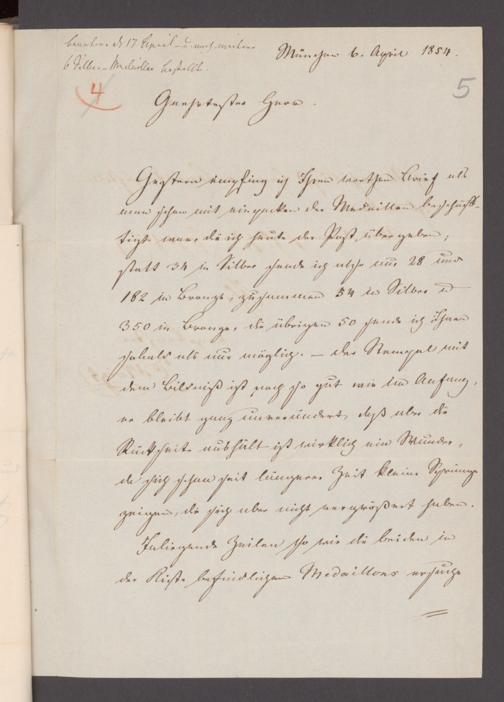 beantw. d 17 April u. noch weitere
6 Silber-Medaillen bestellt.
München 6. April 1854.
4
5
Geehrtester Herr.
Gestern empfing ich Ihren werthen Brief als
man schon mit einpacken der Medaillen beschäf-
tigt war, die ich heute der Post übergeben,
statt 34 in Silber sende ich also nur 28 und
182 in Bronze, zusammen 54 in Silber u
350 in Bronze, die übrigen 50 sende ich Ihnen
sobald als nur möglich. – Der Stempel mit
dem Bildniß ist noch so gut wie im Anfang,
er bleibt ganz unverändert, daß aber die
Rückseite aushält ist wirklich ein Wunder,
da sich schon seit längerer Zeit kleine Sprünge
zeigen, die sich aber nicht vergrößert haben.
Inliegende Zeilen so wie die beiden in
der Kiste befindlichen Medaillons ersuche